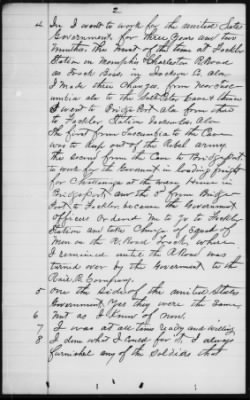 2
4 In I went to work for the united States
Government for three years and two
months. the most of the time at Fackler
Station on Memphis & Charleston R. Road
as Track Boss, in Jackson Co. ala
I made three changes, from near Tuscumbia
ala to the
I went to Bridge Port ala from there
to Fackler Station Jackson Co. Ala
The first from Tuscumbia to the Cave
was to keep out of the Rebel army.
the second from the Cave to Bridgeport
to work for the Government in loading freight
for Chattanooga at the ware House in
Bridgeport and the 3d from Bridge
Port to Fackler because the Government
officers ordered me to go to Fackler
Station and take charge of Squad of
Men on the R. Road Track, where
I remained until the R Road was
turned over by the Government to the
Rail R. Company.
5 On the side of the united States
Government. Yes they were the same
6 not as I know of now.
7 I was at all times ready and willing
8 I done what I could for it, I always
furnished any of the Soldiers that